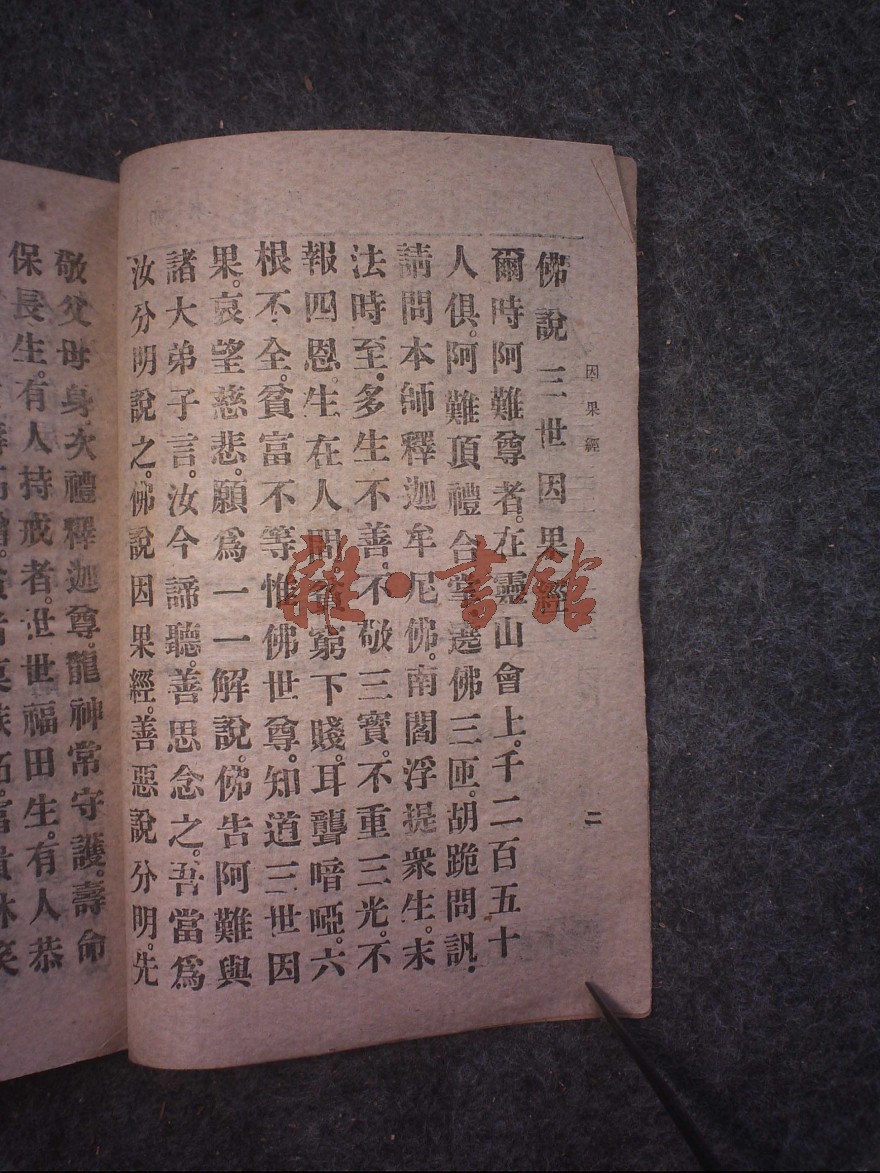 因果經
二
佛說三世因果經
爾時阿難尊者。在靈山會上。千二百五十
人俱。阿難頂禮合掌遶佛三匝。胡跪問訊。
請問本師釋迦牟尼佛。南閻浮提衆生。末
法時至。多生不善。不敬三寶。不重三光。不
報四恩。生在人間。貧窮下賤。耳聾喑啞。六
根不全。貧富不等惟佛世尊。知道三世因
果。哀望慈悲。願爲一一解說。佛告阿難與
諸大弟子言。汝今諦聽。善思念之。吾當爲
汝分明說之。佛說因果經。善惡說分明。先
敬父母身。次禮釋迦尊。龍神常守護。壽命
保長生。有人持戒者。世世福田生。有人恭
雜·書館